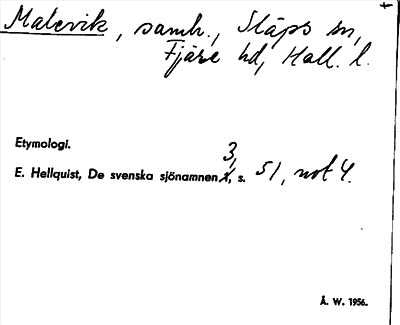 Malevik, samh., Släps sn,
Fjäre hd, Hall. l.
Etymologi.
3,
E. Hellquist, De svenska sjönamnen, s. 51, not 4.
Å. W. 1956.